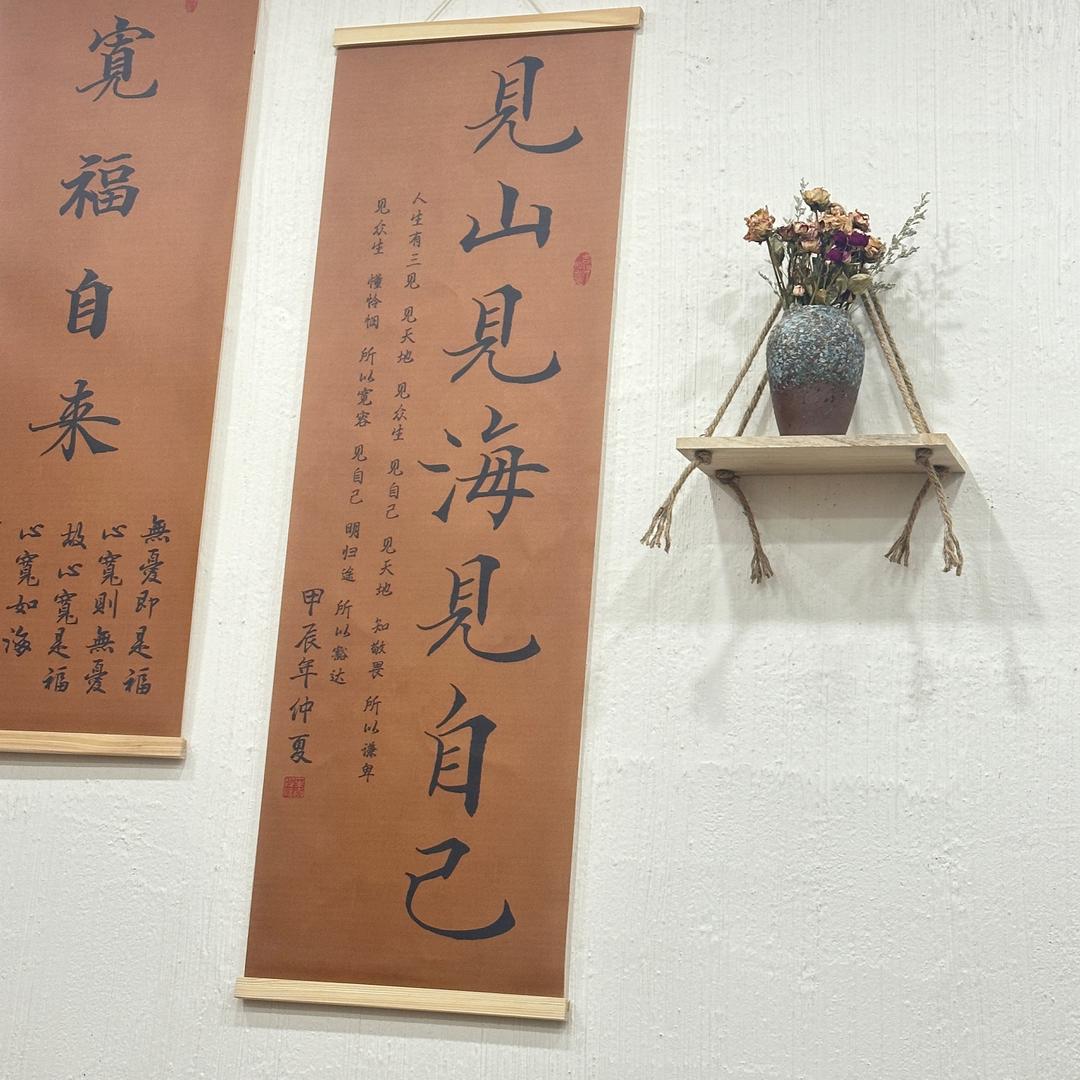 見山見海見自己
人生有三见 见天地 见众生 见自己 见天地 知敬畏 所以谦卑
见众生 懂怜悯 所以宽容 见自己 明归途 所以豁达
甲辰年仲夏
寬福自来
無憂即是福
心寬則無憂
故心寬是福
心寬如海